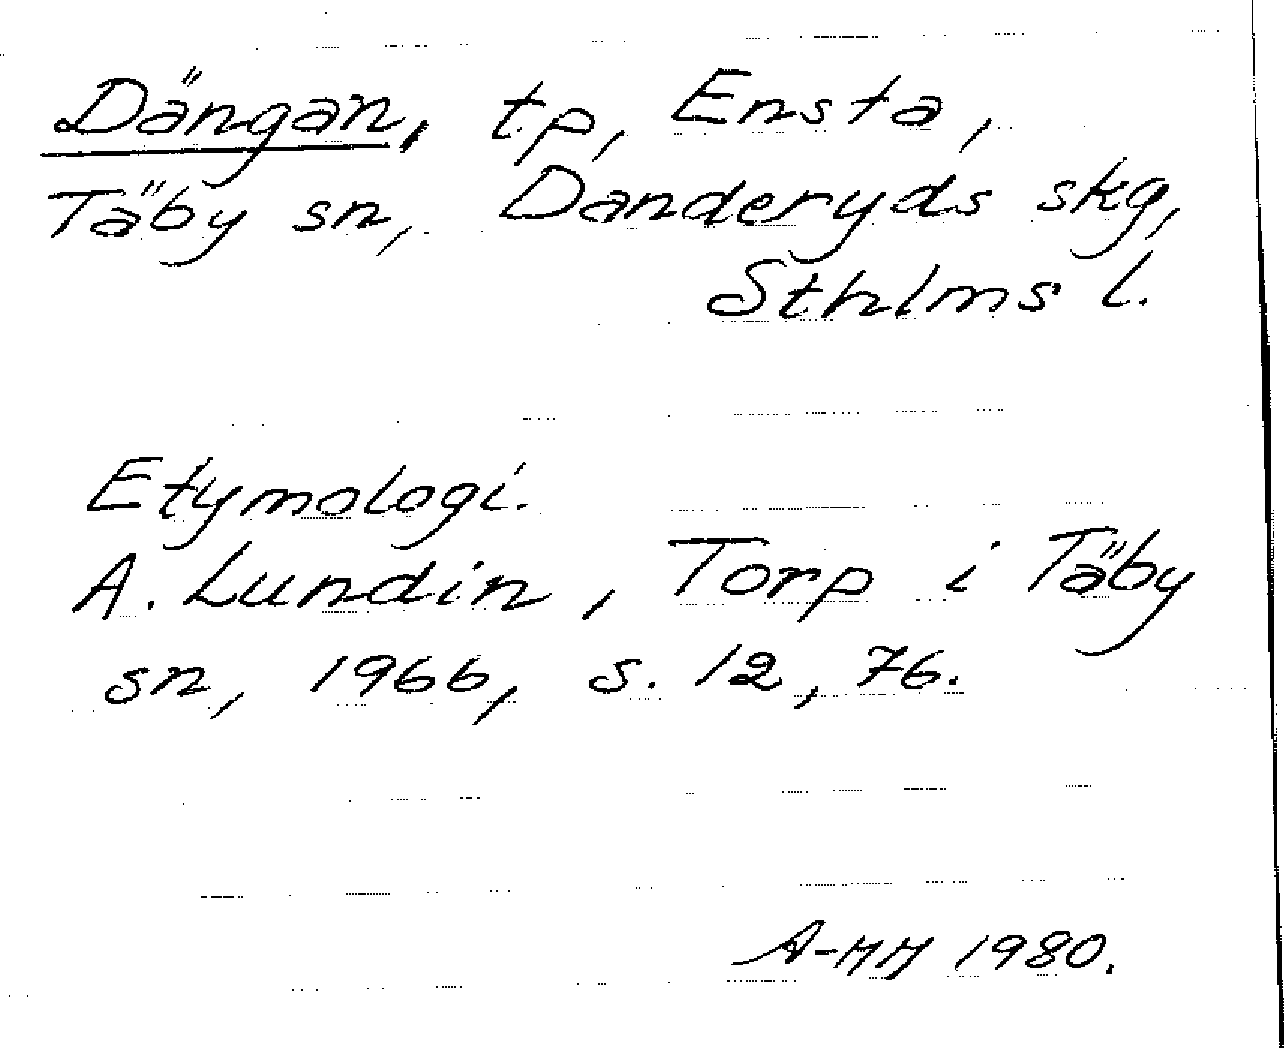 Dängan, tp, Ensta,
Täby sn, Danderyds skg,
Sthlms l.
Etymologi.
A. Lundin, Torp i Täby
sn, 1966, s. 12, 76.
A-MM 1980.